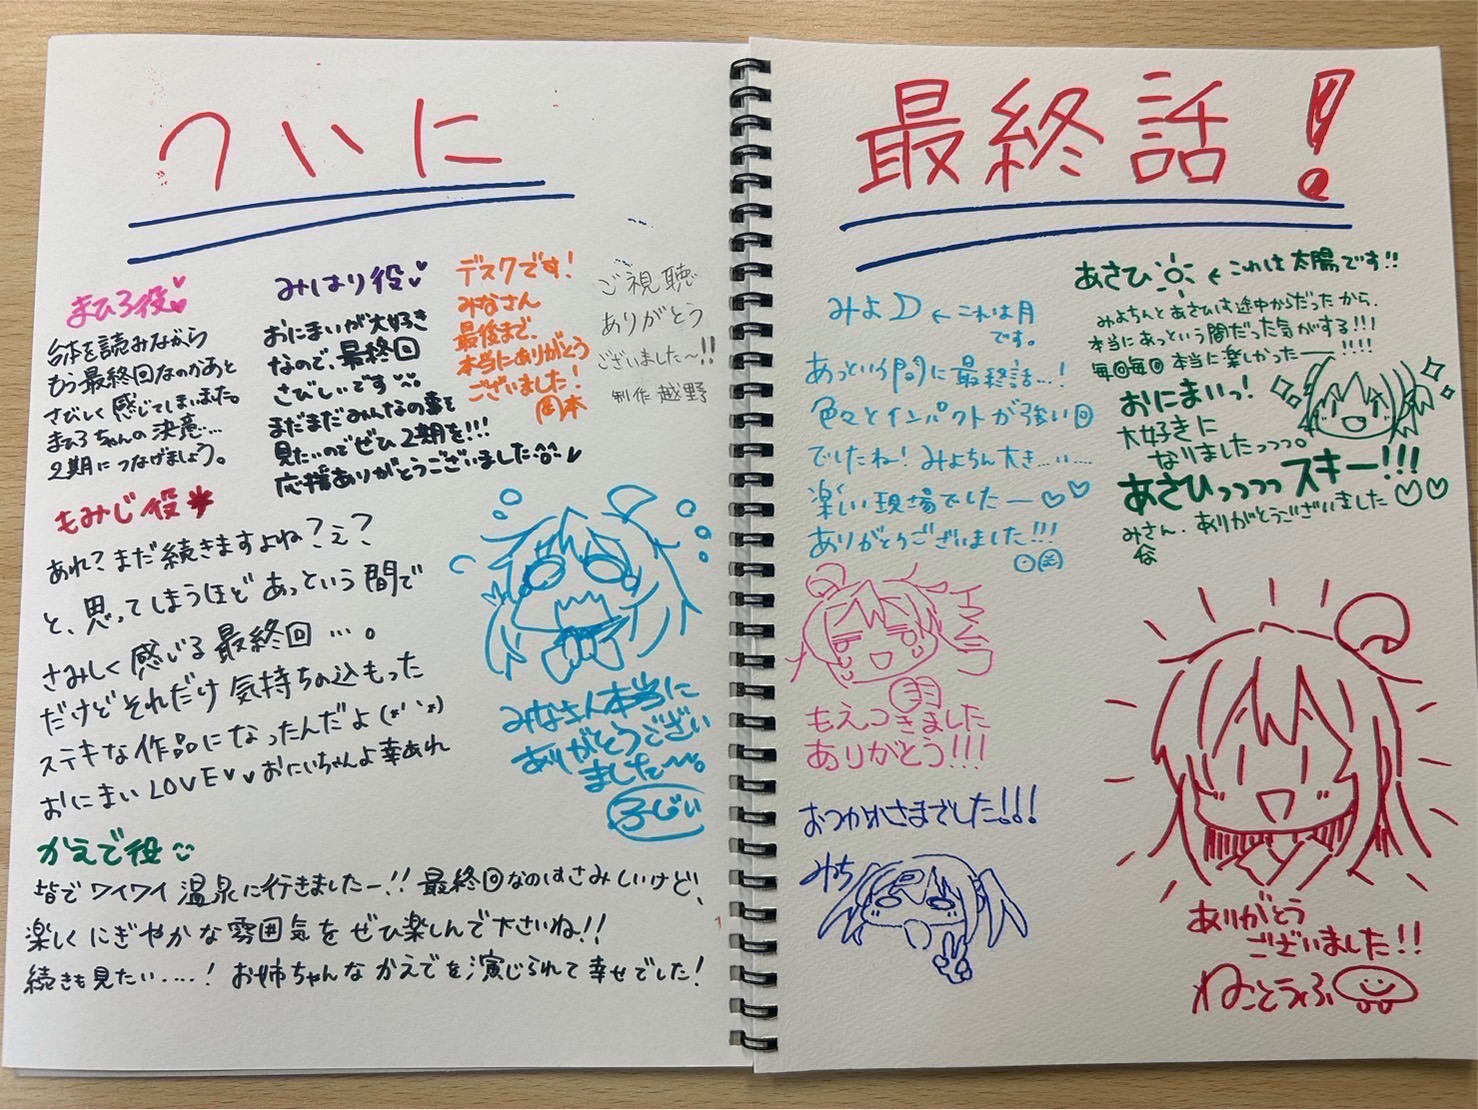 ついに
まひろ役
台本を読みながら
もう最終回なのかあと
さびしく感じてしまいました。
まひろちゃんの決意…
2期につなげましょう。
みはり役
おにまいが大好き
なので、最終回
さびしいです
まだまだみんなの事を
見たいのでぜひ2期を!!!
応援ありがとうございました
デスクです!
みなさん
最後まで、
本当にありがとう
ございました!
岡本
ご視聴
ありがとう
ございました〜!!
制作 越野
もみじ役
あれ?まだ続きますよね?え?
と、思ってしまうほどあっという間で
さみしく感じる最終回…。
だけどそれだけ気持ちの込もった
ステキな作品になったんだよ(*´`*)
おにまいLOVE♥♥おにいちゃんよ幸あれ
みなさん本当に
ありがとうござい
ました〜。
ふじい
かえで役
皆でワイワイ温泉に行きましたー!! 最終回なのはさみしいけど、
楽しくにぎやかな雰囲気をぜひ楽しんで下さいね!!
続きも見たい....! お姉ちゃんなかえでを演じられて幸せでした!
最終話!
みよ ← これは月
です。
あっという間に最終話…!
色々とインパクトが強い回
でしたね! みよちん大き…い…
楽しい現場でしたー♡♡
ありがとうございました!!!
あさひ ← これは太陽です!!
みよちんとあさひは途中からだったから、
本当にあっという間だった気がする!!!
毎回毎回本当に楽しかったー!!!!
おにまいっ!
大好きに
なりましたっっっ。
あさひっっっっスキー!!!
みさん、ありがとうございました♡♡
もえつきました
ありがとう!!!
おつかれさまでした!!!
みち
ありがとう
ございました!!
ねことうふ